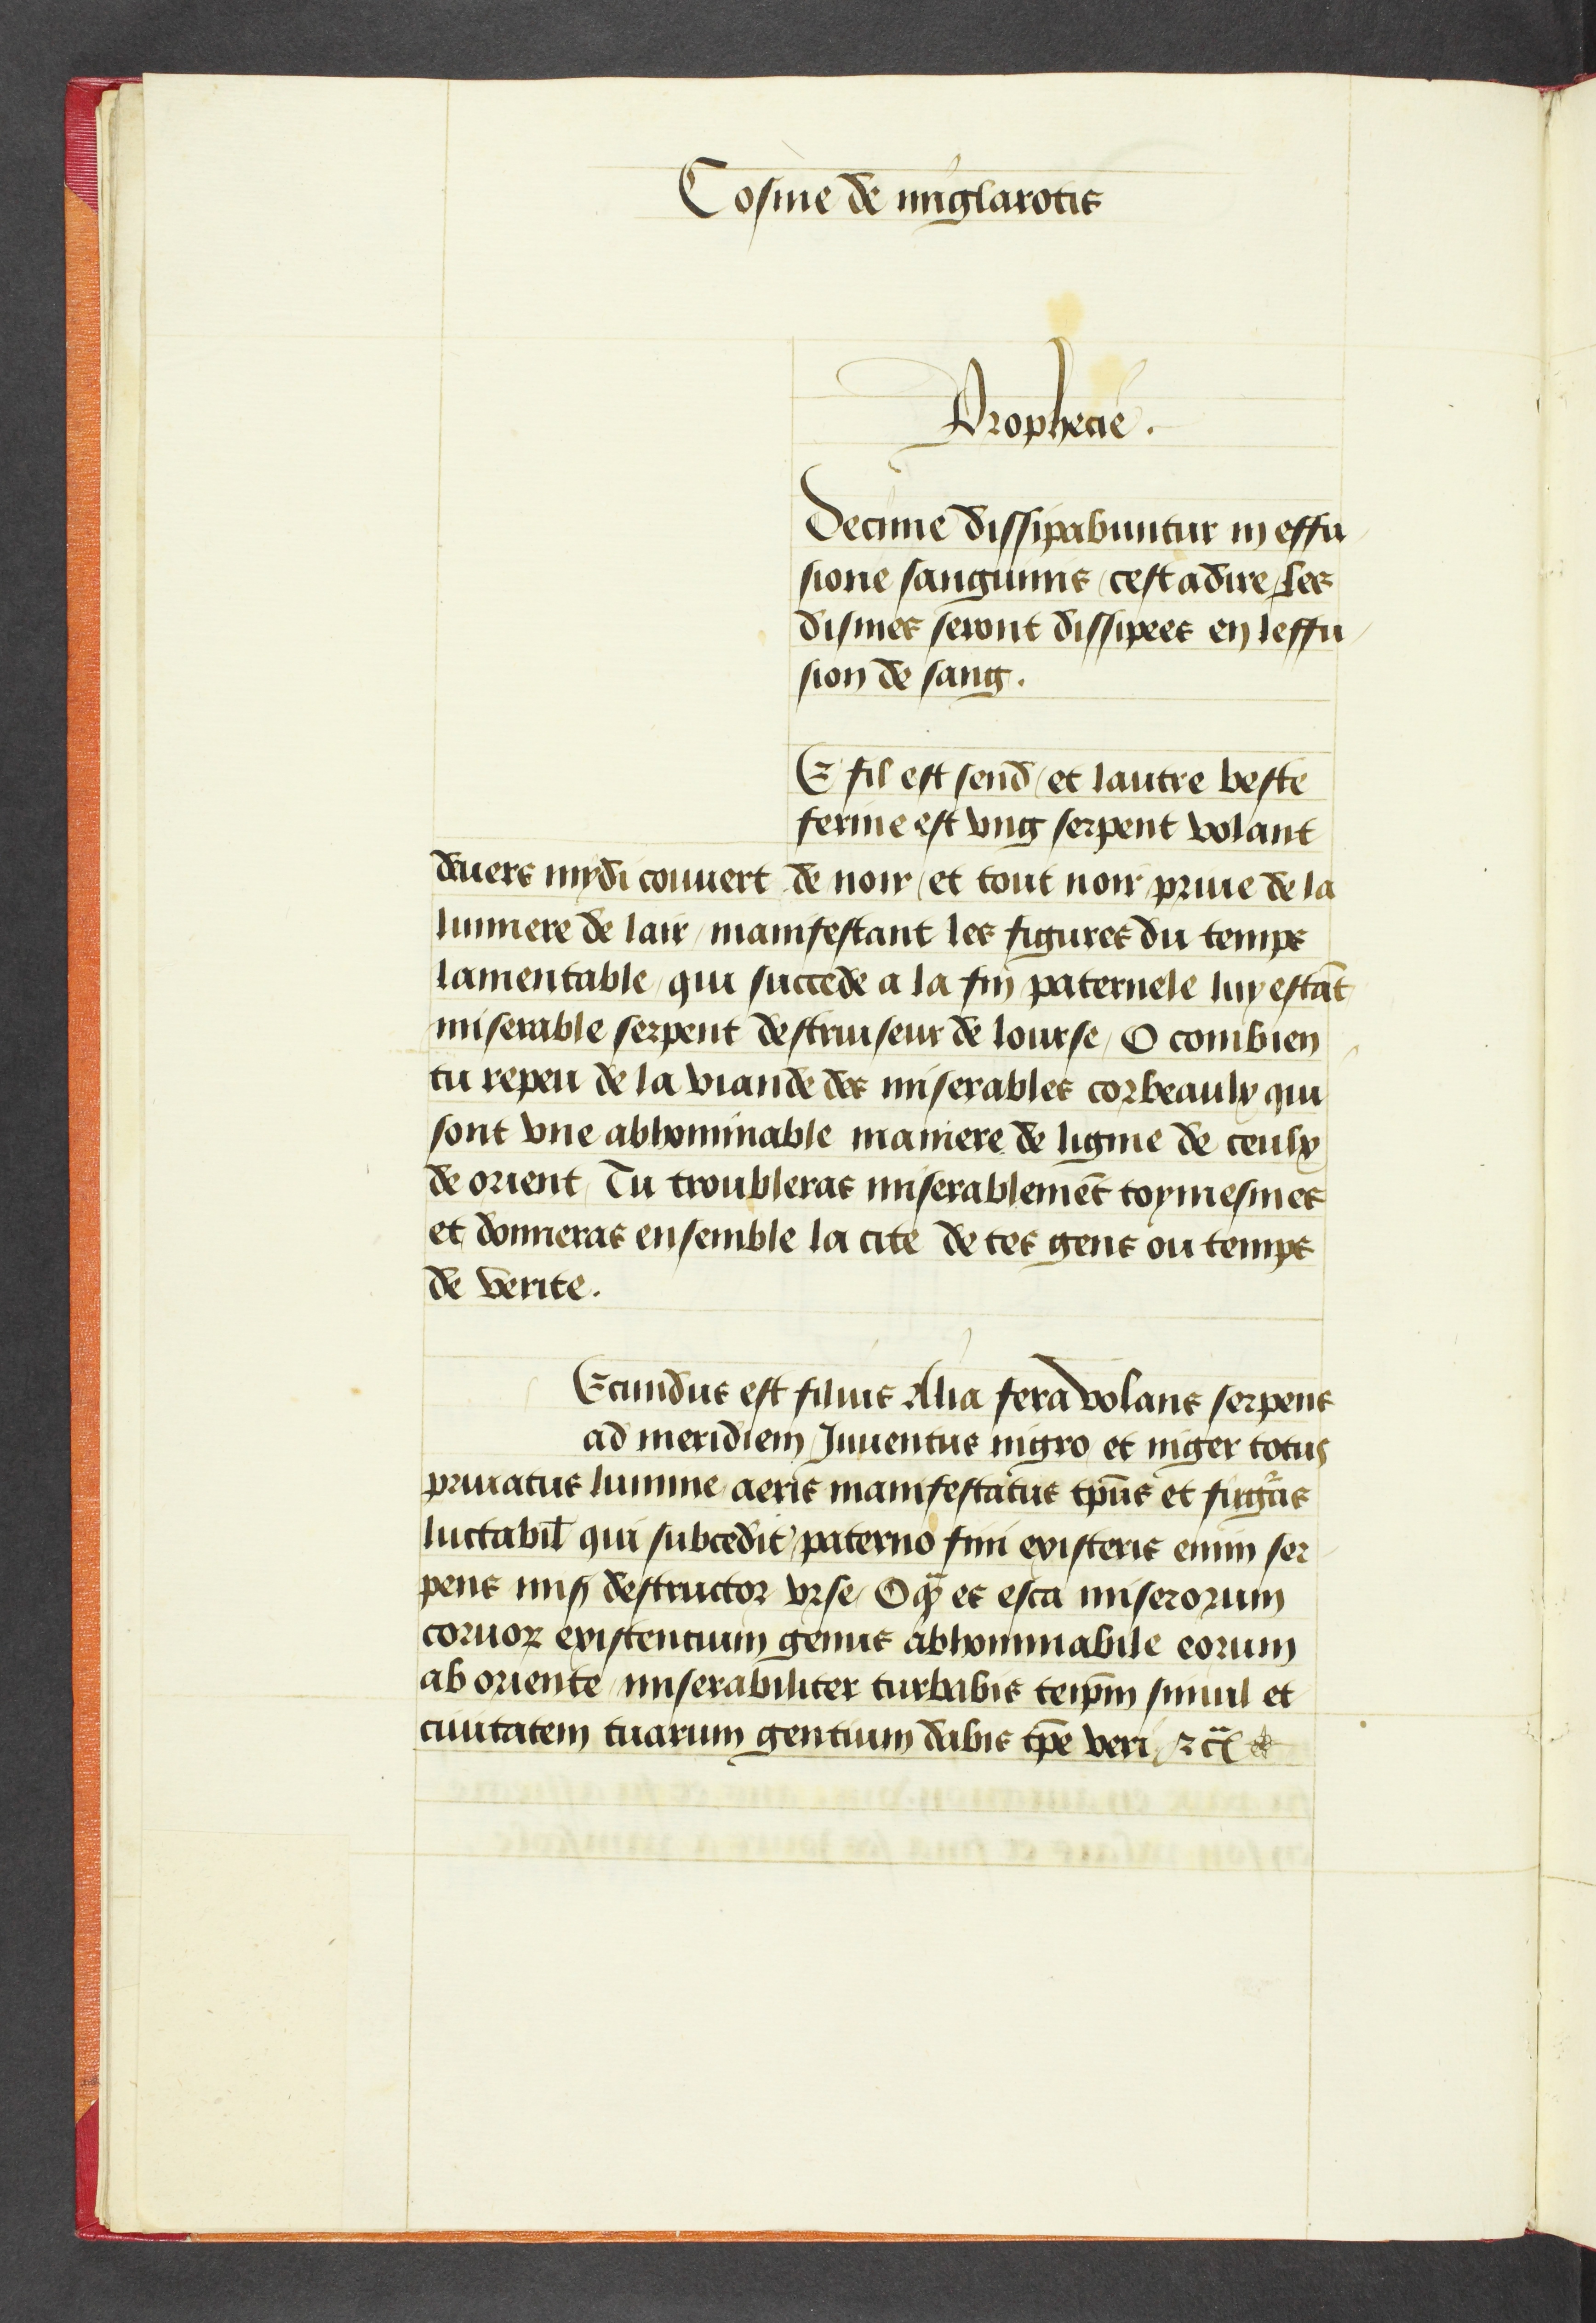 Cosme de miglarotis
Prophecie.
Decime dissipabuntur in effu
sione sanguinis / cest a dire / Les
dismes seront dissipees en leffu
sion de sang.
E fil est send / et lautre beste
ferme est vng serpent volant
deuers mydi couuert de noir / et tout noir priue de la
lumiere de lair / manifestant les figures du temps
lamentable / qui succede a la fin paternele luy estāt
miserable serpent destruiseur de lourse / O combien
tu repeu de la viande des miserables corbeaulx qui
sont vne abhominable maniere de ligme de ceulx
de orient / Tu troubleras miserablemēt toymesmes
et donneras ensemble la cite de tes gens ou temps
de verite.
Ecundus est filius Alia fera volans serpens
ad meridiem / Juuentus nigro et niger totus
priuatus lumine aeris manifestatus tpūs et
luctabil qui subcedit / paterno fini existeris enim ser
pens destructor vrse / O es esca miserorum
coruoꝝ existencium genus abhominabile eorum
ab oriente / miserabiliter turbabis teip̄m simul et
ciuitatem tuarum gentium dabis tp̄e veri / ⁊c̄